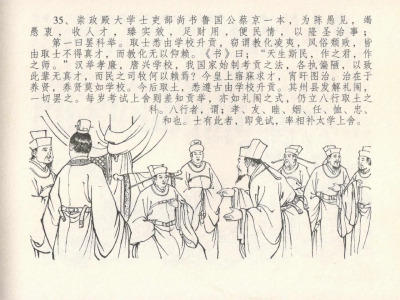 35、崇政殿大学士吏部尚书鲁国公蔡京一本，为陈愚见，竭
愚衷，收人才，臻实效，足财用，便民情，以隆圣治事；
第一曰罢科举。取士悉由学校升贡，窃谓教化凌夷，风俗颓败，皆
由取士不得真才，而教化无以仰赖。《书》曰：“天生斯民，作之君，作
之师。”汉举孝廉，唐兴学校，我国家始制考贡之法，各执偏陋，以致
此辈无真才，而民之司牧何以赖焉？今皇上寤寐求才，宵旰图治。治在于
养贤，养贤莫如学校。今后取士，悉遵古由学校升贡。其州县发解礼闱，
一切罢之。每岁考试上舍则差知贡举，亦如礼闱之式，仍立八行取士之
科。八行者，谓：孝、友、睦、姻、任、恤、忠、
和也。士有此者，即免试，率相补太学上舍。